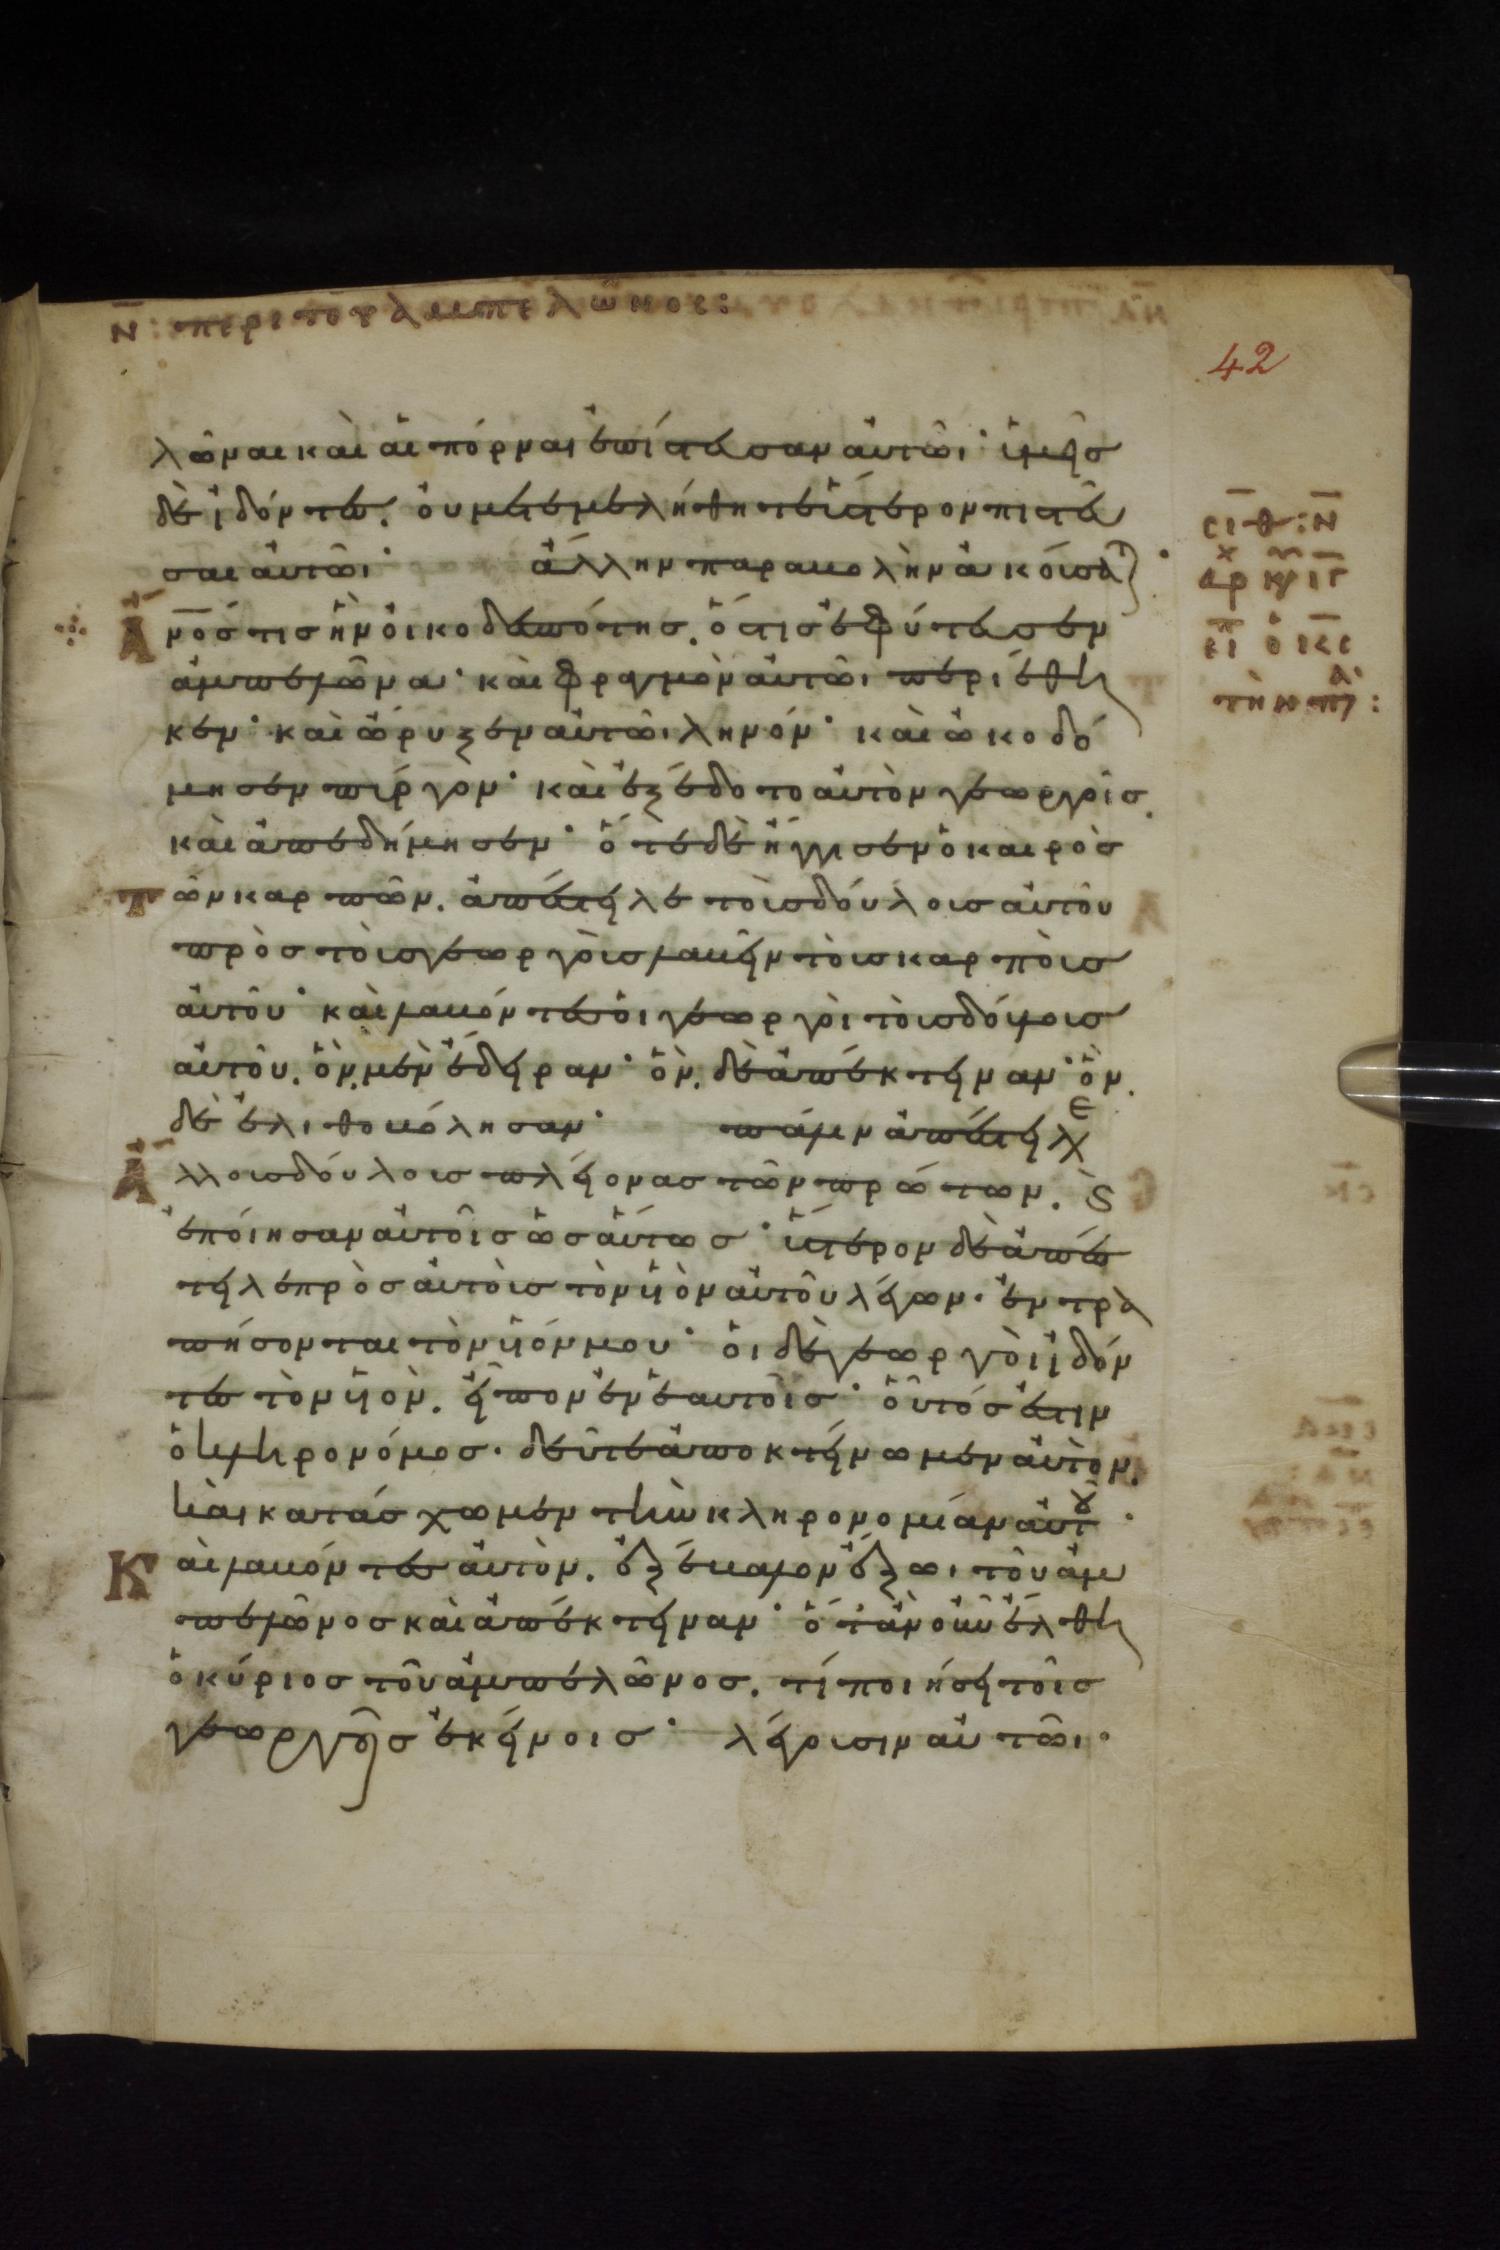 Ν̅: περὶ τοῦ ἀμπελῶνος:
42
λῶναι καὶ αἱ πόρναι ἐπίστευσαν αὐτῶι· ὑμεῖσ
δὲ ἰδόντες, οὐ μετεμελήθητε ὕστερον πιστεῦ
σαι αὐτῶι· ἄλλην παραβολὴν ἀκούσατ(ε)·
Ἄνο̅ς τισ ἦν οἰκοδεσπότησ, ὅστισ ἐφύτευσεν
ἀμπελῶνα· καὶ φραγμὸν αὐτῶι περιέθη
κεν· καὶ ὤρυξεν αὐτῶι ληνόν· καὶ ὠκοδό
μησεν πύργον· καὶ ἐξέδοτο αὐτὸν γεωργοῖσ,
καὶ ἀπεδήμησεν· ὅτε δὲ ἤγγισεν ὁ καιρὸσ
τῶν καρπῶν, ἀπέστειλε τοὺσ δούλουσ αὐτοῦ
πρὸσ τοὺσ γεωργοὺσ λαβεῖν τοὺσ καρποὺσ
αὐτοῦ· καὶ λαβόντεσ οἱ γεωργοὶ τοὺσ δούλουσ
αὐτοῦ, ὃν μὲν ἔδειραν· ὃν, δὲ ἀπέκτειναν· ὃν,
δὲ ἐλιθοβόλησαν· πάλιν ἀπέστειλε
Ἄλλουσ δούλουσ πλείονασ τῶν πρώτων, ϗ
ἐποίησαν αὐτοῖσ ὡσαύτωσ· ὕστερον δὲ ἀπέσ
τειλε πρὸσ αὐτοὺσ τὸν ὑιὸν αὐτοῦ λέγων· ἐντρα
πήσονται τὸν ὑιόν μου· οἱ δὲ γεωργοὶ ἰδόν
τεσ τὸν ὑιὸν, εἶπον ἐν ἑαυτοῖσ· οὗτόσ ἐστιν
ὁ κληρονόμοσ· δεῦτε ἀποκτείνωμεν αὐτὸν,
καὶ κατάσχωμεν τὴν κληρονομίαν αὐτοῦ·
Καὶ λαβόντεσ αὐτὸν, ἐξέβαλον ἔξω τοῦ ἀμ
πελῶνοσ καὶ ἀπέκτειναν· ὅταν οὖν ἔλθη
ὁ κύριοσ τοῦ ἀμπελῶνοσ, τί ποιήσει τοῖσ
γεωργοῖσ ἐκείνοισ· λέγουσιν αὐτῶι·